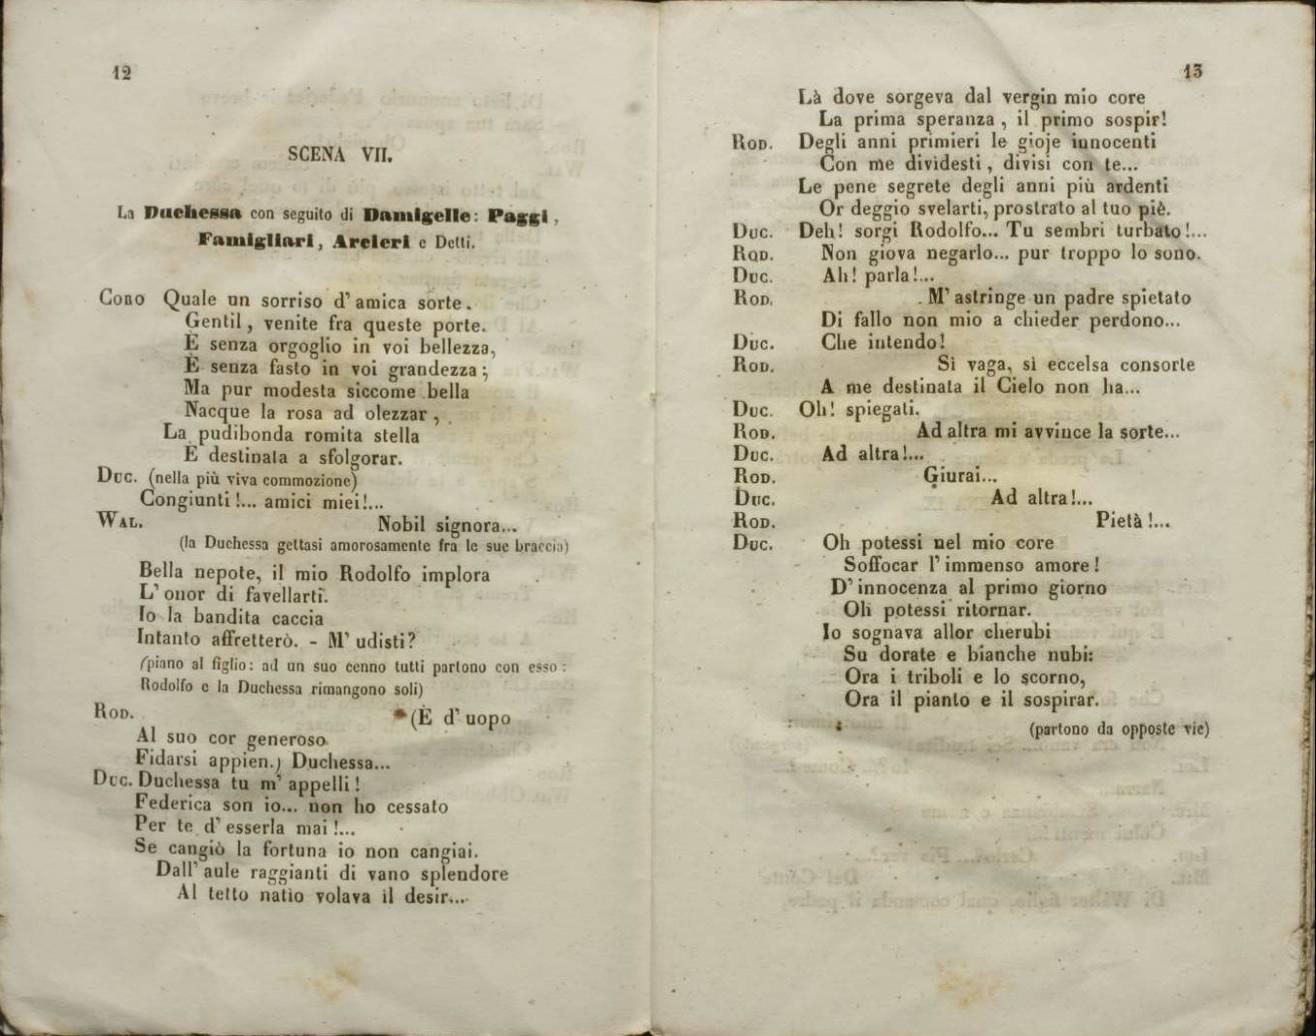 12
SCENA VII.
La Duchessa con seguito di Damigelle: Paggi,
Famigliari, Arcieri e Detti.
Coro Quale un sorriso d'amica sorte.
Gentil, venite fra queste porte.
È senza orgoglio in voi bellezza,
È senza fasto in voi grandezza;
Ma pur modesta siccome bella
Nacque la rosa ad olezzar,
La pudibonda romita stella
E destinata a sfolgorar.
Duc. (nella più viva commozione)
Congiunti!... amici miei!...
Wal. Nobil signora...
(la Duchessa gettasi amorosamente fra le sue braccia)
Bella nepote, il mio Rodolfo implora
L'onor di favellarti.
Io la bandita caccia
Intanto affretterò. - M'udisti?
(piano al figlio: ad un suo cenno tutti partono con esso:
Rodolfo e la Duchessa rimangono soli)
Rod. (È d'uopo
Al suo cor generoso
Fidarsi appien.) Duchessa...
Duc. Duchessa tu m'appelli!
Federica son io... non ho cessato
Per te d'esserla mai!...
Se cangiò la fortuna io non cangiai.
Dall'aule raggianti di vano splendore
Al tetto natìo volava il desir...
13
Là dove sorgeva dal vergin mio core
La prima speranza, il primo sospir!
Rod. Degli anni primieri le gioje innocenti
Con me dividesti, divisi con te...
Le pene segrete degli anni più ardenti
Or deggio svelarti, prostrato al tuo piè.
Duc. Deh! sorgi Rodolfo... Tu sembri turbato!...
Rod. Non giova negarlo... pur troppo lo sono.
Duc. Ah! parla!...
Rod. M'astringe un padre spietato
Di fallo non mio a chieder perdono...
Duc. Che intendo!
Rod. Sì vaga, sì eccelsa consorte
A me destinata il Cielo non ha...
Duc. Oh! spiegati.
Rod. Ad altra mi avvince la sorte...
Duc. Ad altra!...
Rod. Giurai...
Duc. Ad altra!...
Rod. Pietà!...
Duc. Oh potessi nel mio core
Soffocar l'immenso amore!
D'innocenza al primo giorno
Oh potessi ritornar.
Io sognava allor cherubi
Su dorate e bianche nubi:
Ora i triboli e lo scorno,
Ora il pianto e il sospirar.
(partono da opposte vie)